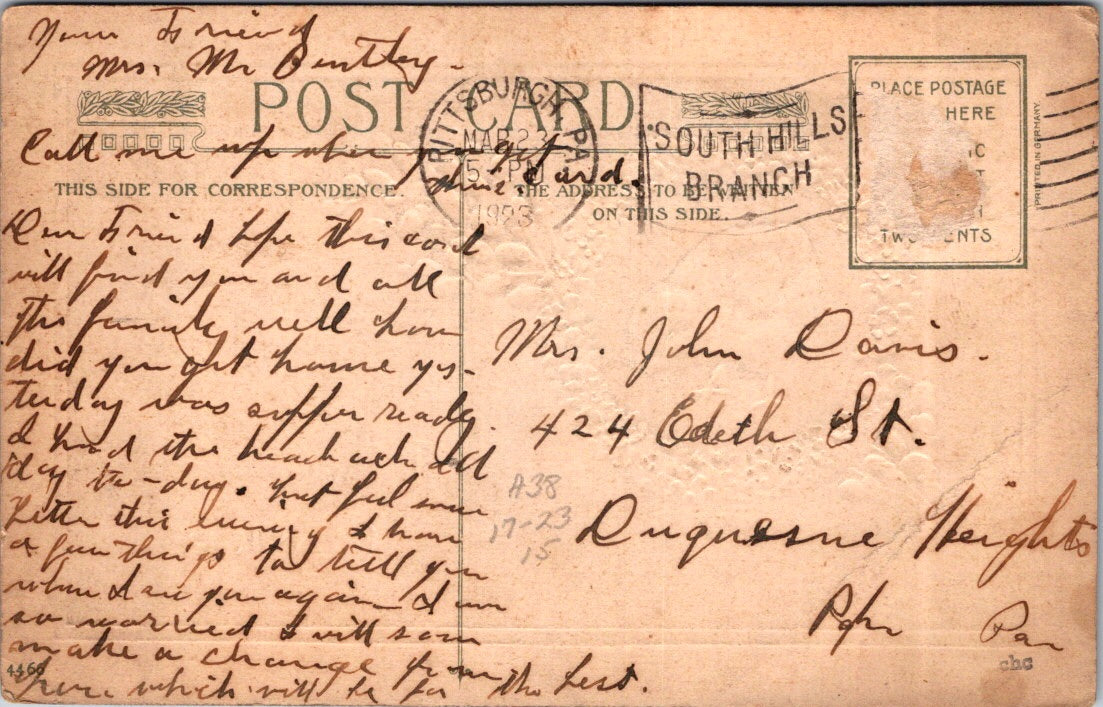 Your Friend
Mrs. Mr Bentley.
POST CARD
Call me up when you get
this Card.
PITTSBURGH, PA.
MAR 22
5 PM
1923
SOUTH HILLS
BRANCH
PLACE POSTAGE
HERE
TWO CENTS
PRINTED IN GERMANY.
THIS SIDE FOR CORRESPONDENCE.
THE ADDRESS TO BE WRITTEN
ON THIS SIDE.
Dear Friend hope this card
will find you and all
the family well how
did you get home yes-
terday was supper ready.
I had the headache all
day to-day. but feel some
better this evening I have
a few things to tell you
when I see you again I am
so worried I will soon
make a change from
here which will be for the best.
Mrs. John Davis.
424 Edeth St.
Duquesne Heights
Pgh Pa
A38
17-23
15
4466
cbc